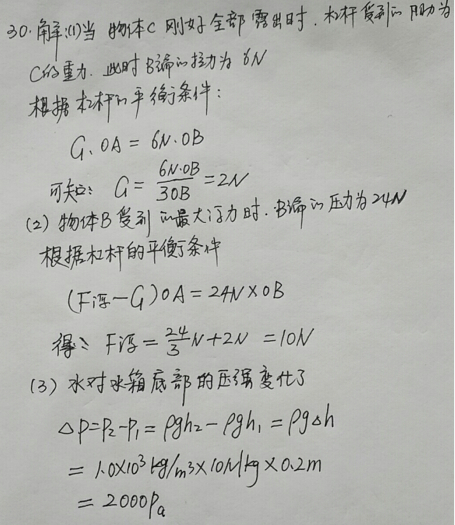 30.解:(1)当物体C刚好全部露出时.杠杆受到的力为
C的重力.此时B端的拉力为6N
根据杠杆的平衡条件:
G·OA=6N·OB
可知: G=6N·OB/3OB=2N
(2)物体B受到的最大浮力时.B端的压力为24N
根据杠杆的平衡条件
(F浮-G)OA=24N×OB
得: F浮=24/3N+2N =10N
(3)水对水箱底部的压强变化了
△P=P₂-P₁=ρgh₂-ρgh₁=ρg△h
=1.0×10³kg/m³×10N/kg×0.2m
=2000Pa